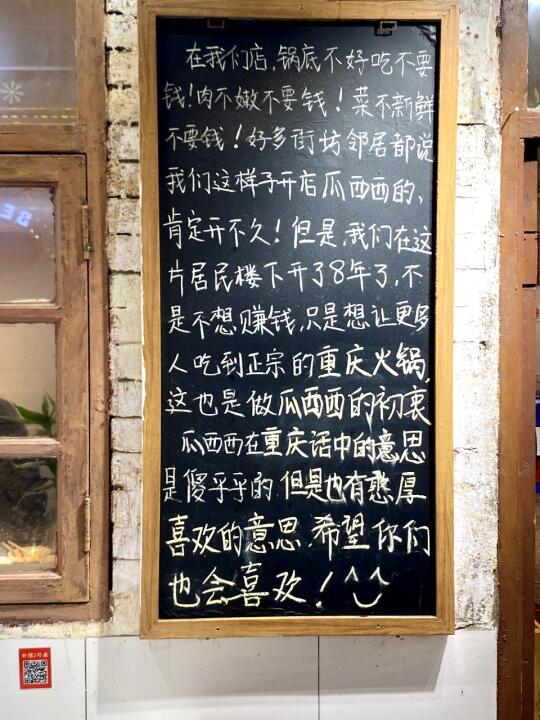 在我们店,锅底不好吃不要
钱!肉不嫩不要钱!菜不新鲜
不要钱!好多街坊邻居都说
我们这样子开店瓜西西的、
肯定开不久!但是,我们在这
片居民楼下开了8年了,不
是不想赚钱,只是想让更多
人吃到正宗的重庆火锅,
这也是做瓜西西的初衷
瓜西西在重庆话中的意思
是傻乎乎的,但是也有憨厚
喜欢的意思,希望你们
也会喜欢!^_^